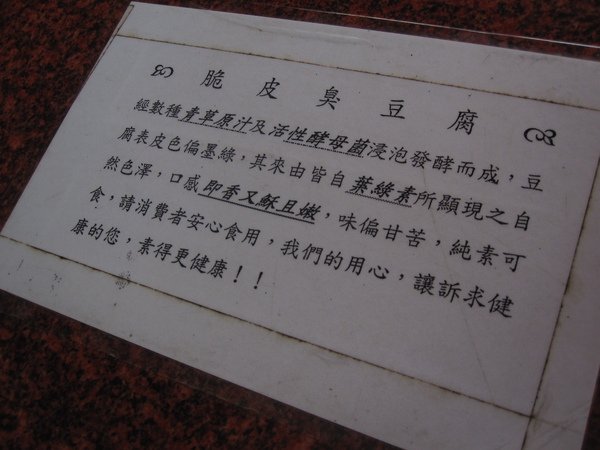 脆皮臭豆腐
經數種青草原汁及活性酵母菌浸泡發酵而成，豆
腐表皮色偏墨綠，其來由皆自葉綠素所顯現之自
然色澤，口感即香又酥且嫩，味偏甘苦，純素可
食，請消費者安心食用，我們的用心，讓訴求健
康的您，素得更健康！！